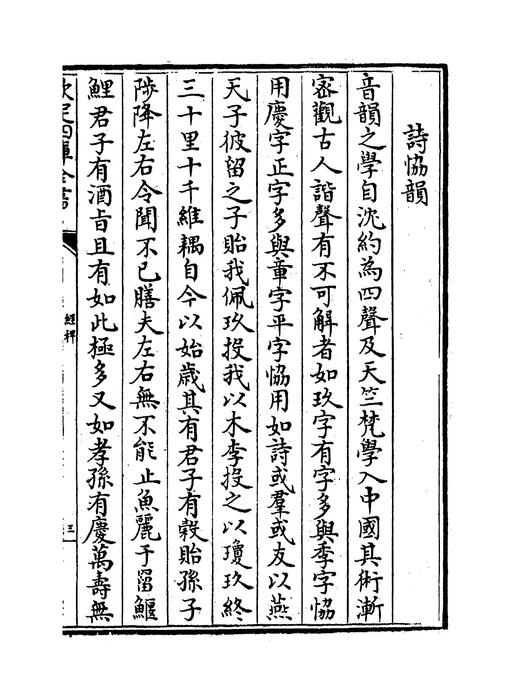 詩恊韻
音韻之學自沈約為四聲及天竺梵學入中國其術漸
宻觀古人諧聲有不可解者如玖字有字多與李字恊
用慶字正字多與章字平字恊用如詩或羣或友以燕
天子彼留之子貽我佩玖投我以木李投之以瓊玖終
三十里十千維耦自今以始歲其有君子有榖貽孫子
陟降左右令聞不已膳夫左右無不能止魚麗于罶鰋
鯉君子有酒旨且有如此極多又如孝孫有慶萬壽無
欽定四庫全書
經稗
三